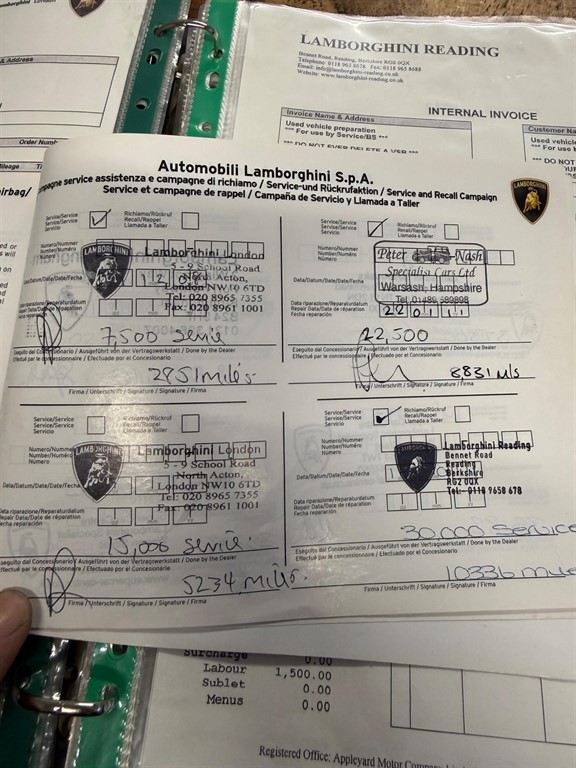 LAMBORGHINI READING
Bennet Road, Reading, Berkshire RG2 0QX
Telephone: 0118 965 8678 Fax: 0118 965 8688
Email: info@lamborghini-reading.co.uk
Website: www.lamborghini-reading.co.uk
INTERNAL INVOICE
Invoice Name & Address
Used vehicle preparation
*** For use by Service/BS ***
Customer Nam
Used vehicle
*** For use b
& Address
Order Numb
Mileage
airbag/
Automobili Lamborghini S.p.A.
mpagne service assistenza e campagne di richiamo / Service-und Rückrufaktion / Service and Recall Campaign
Service et campagne de rappel / Campaña de Servicio y Llamada a Taller
Service/Service
Service/Service
Servicio
Richiamo/Rückruf
Recall/Rappel
Llamada a Taller
Numero/Nummer
Number/Numéro
Número
Data/Datum/Date/Date/Fecha
Data riparazione/Reparaturdatum
Repair Date/Date de réparation
Fecha reparación
LAMBORGHINI
Lamborghini London
5 - 9 School Road
North Acton,
London NW10 6TD
Tel: 020 8965 7355
Fax: 020 8961 1001
7,500 service
Eseguito dal Concessionario / Ausgeführt von der Vertragswerkstatt / Done by the Dealer
Effectué par le concessionnaire / Efectuado por el Concesionario
2851 miles
Firma / Unterschrift / Signature / Signature / Firma
Service/Service
Service/Service
Servicio
Richiamo/Rückruf
Recall/Rappel
Llamada a Taller
Numero/Nummer
Number/Numéro
Número
Data/Datum/Date/Date/Fecha
Peter Nash
Specialist Cars Ltd
Warsash, Hampshire
Tel: 01489 589808
Data riparazione/Reparaturdatum
Repair Date/Date de réparation
Fecha reparación
22 01 11
22,500
Eseguito dal Concessionario / Ausgeführt von der Vertragswerkstatt / Done by the Dealer
Effectué par le concessionnaire / Efectuado por el Concesionario
8831 Mls
Firma / Unterschrift / Signature / Signature / Firma
Service/Service
Service/Service
Servicio
Richiamo/Rückruf
Recall/Rappel
Llamada a Taller
Numero/Nummer
Number/Numéro
Número
Data/Datum/Date/Date/Fecha
Data riparazione/Reparaturdatum
Repair Date/Date de réparation
Fecha reparación
LAMBORGHINI
Lamborghini London
5 - 9 School Road
North Acton,
London NW10 6TD
Tel: 020 8965 7355
Fax: 020 8961 1001
15,000 service.
Eseguito dal Concessionario / Ausgeführt von der Vertragswerkstatt / Done by the Dealer
Effectué par le concessionnaire / Efectuado por el Concesionario
5234 miles.
Firma / Unterschrift / Signature / Signature / Firma
Service/Service
Service/Service
Servicio
Richiamo/Rückruf
Recall/Rappel
Llamada a Taller
Numero/Nummer
Number/Numéro
Número
Data/Datum/Date/Date/Fecha
Data riparazione/Reparaturdatum
Repair Date/Date de réparation
Fecha reparación
LAMBORGHINI
Lamborghini Reading
Bennet Road
Reading
Berkshire
RG2 0QX
Tel:- 0118 9658 678
30000 Service
Eseguito dal Concessionario / Ausgeführt von der Vertragswerkstatt / Done by the Dealer
Effectué par le concessionnaire / Efectuado por el Concesionario
10336
Firma / Unterschrift / Signature / Signature / Firma
Surcharge 0.00
Labour 1,500.00
Sublet 0.00
Menus 0.00
Registered Office: Appleyard Motor Company